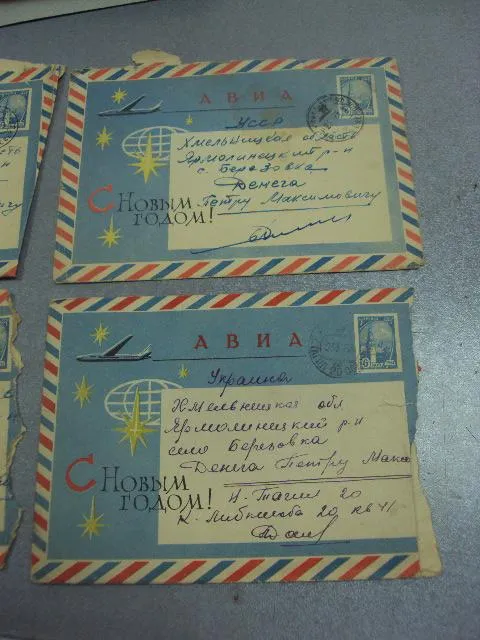 АВИА
УССР
Хмельницкая область
Ярмолинецкий р-н
с. Березовка
Денега
Петру Максимовичу
С НОВЫМ
ГОДОМ!
АВИА
Украина
Хмельницкая обл
Ярмолинецкий р-н
село Березовка
Денега Петру Макс
С НОВЫМ
ГОДОМ!
Н-Тагил 20
К. Либкнехта 20 кв 41